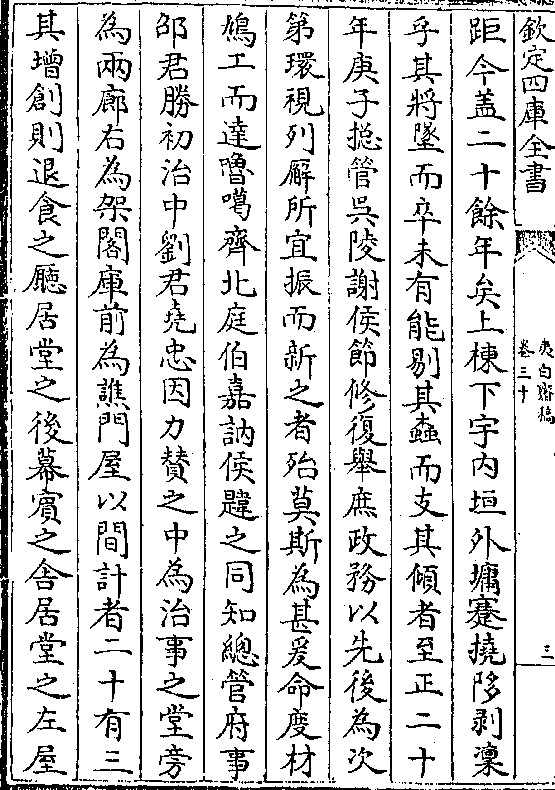 欽定四庫全書
夷白齋稿
卷三十
三
距今蓋二十餘年矣上棟下宇内垣外墉蹇撓陊剥凜
乎其將墜而卒未有能剔其蠧而支其傾者至正二十
年庚子揔管吳陵謝侯節修復舉庶政務以先後為次
第環視列廨所宜振而新之者殆莫斯為甚爰命度材
鳩工而達嚕噶齊北庭伯嘉訥侯韙之同知總管府事
邵君勝初治中劉君堯忠因力賛之中為治事之堂旁
為兩廊右為架閣庫前為譙門屋以間計者二十有三
其增創則退食之廳居堂之後幕賓之舎居堂之左屋